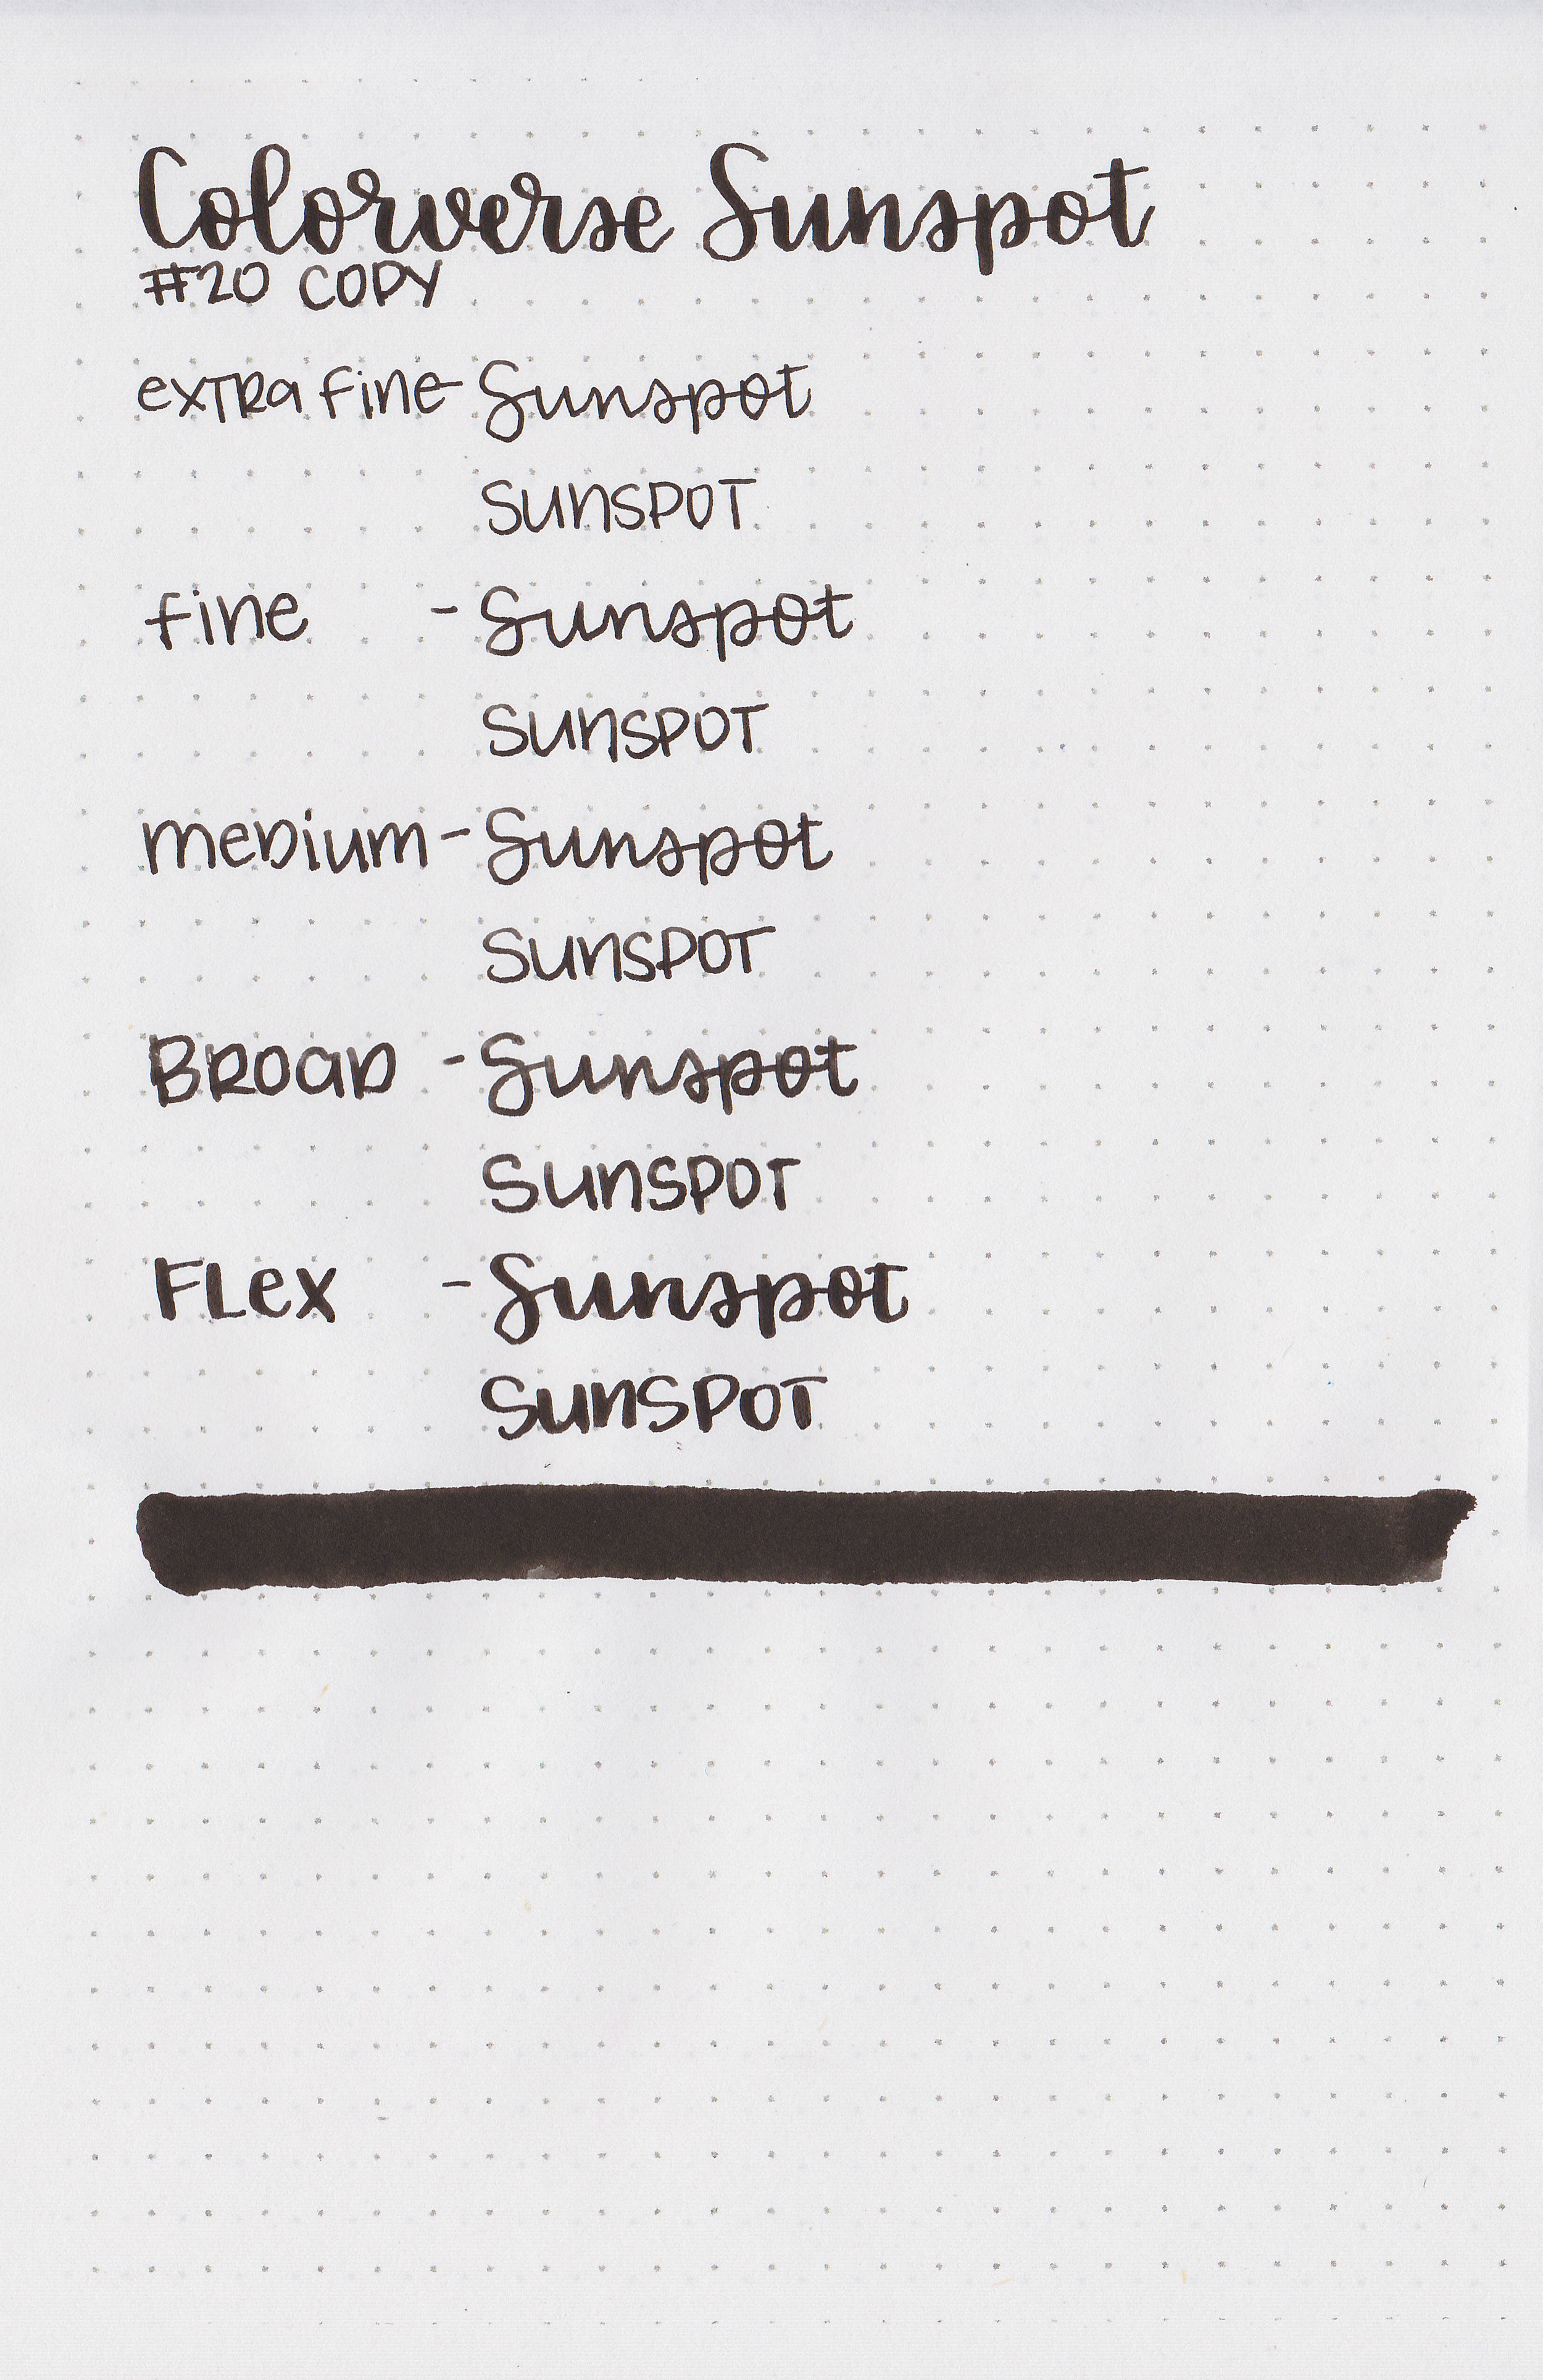 Colorverse Sunspot
#20 COPY
extra fine - Sunspot
SunSPOT
fine - Sunspot
SunSPOT
medium - Sunspot
SunSPOT
Broad - Sunspot
SunSPOT
FLex - Sunspot
SunSPOT